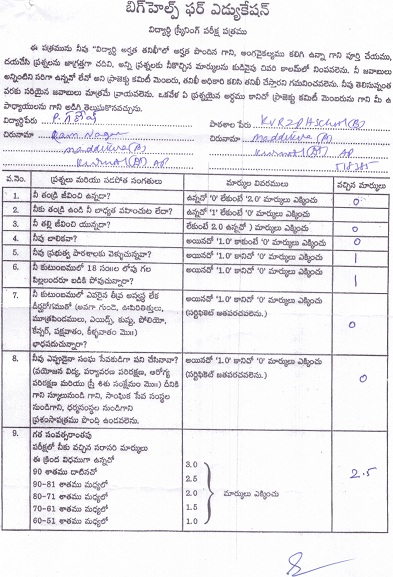 బిగ్‌హెల్ప్ ఫర్ ఎడ్యుకేషన్
విద్యార్థి స్క్రీనింగ్ పరీక్ష పత్రము
ఈ పత్రమును నీవు "విద్యార్థి అర్హత తనిఖీ"లో అర్హత పొందిన గాని, అంగవైకల్యము కలిగి ఉన్నా గాని పూర్తి చేయుము,
దయచేసి ప్రశ్నలను జాగ్రత్తగా చదివి, అన్ని ప్రశ్నలకు నీకొచ్చిన మార్కులను కుడివైపు చివరి కాలమ్‌లో నింపవలెను. నీ జవాబులు
అన్నింటిని సరిగా ఉన్నవో లేవో అని ప్రాజెక్టు కమిటీ మెంబరు, తనిఖీ అధికారి కలిసి తనిఖీ చేస్తారని గమనించవలెను. నీవు తెలిసినంత
వరకు సరియైన జవాబులు మాత్రమే వ్రాయవలెను. ఒకవేళ ఏ ప్రశ్నయైన అర్థము కానిచో ప్రాజెక్టు కమిటీ మెంబరును గాని మీ ఉ
పాధ్యాయులను గాని అడిగి తెలుసుకొనవచ్చును.
విద్యార్థిపేరు P. పాఠశాల పేరు K.V.R Z P H School (B)
చిరునామా Ram Nagar చిరునామా Maddikera (P)
Maddikera (P) Kurnool (Dt) AP
Kurnool (Dt) AP 518385
వ.నెం. ప్రశ్నలు మరియు సదపోత సంగతులు మార్కుల వివరములు వచ్చిన మార్కులు
1. నీ తండ్రి జీవించి ఉన్నడా? ఉన్నచో '0' లేకుంటే '2.0' మార్కులు ఎక్కించు 0
2. నీకు తండ్రి ఉండి నీ బాధ్యత వహించుట లేదా? ఉన్నచో '1' లేకుంటే '0' మార్కులు ఎక్కించు
3. నీ తల్లి జీవించి యున్నదా? లేకుంటే 2.0 ఉన్నచో ) మార్కులు ఎక్కించు 0
4. నీవు బాలికవా? అయినచో '1.0' కాకుంటే '0' మార్కులు ఎక్కించు 0
5. నీవు ప్రభుత్వ పాఠశాలకు వెళ్ళుచున్నవా? అయినచో '1.0' కానిచో '0' మార్కులు ఎక్కించు 1
6. నీ కుటుంబములో 18 సం॥ల లోపు గల అయినచో '1.0' కానిచో '0' మార్కులు ఎక్కించు 1
పిల్లలందరూ బడికి పోవుచున్నారా?
7. నీ కుటుంబములో ఎవరైన తీవ్ర అస్వస్థత లేక అయినచో '1.0' కానిచో '0' మార్కులు ఎక్కించు
దీర్ఘరోగముతో (అనగా గుండె, ఊపిరితిత్తులు, (సర్టిఫికెట్ జతపరచవలెను.)
మూత్రపిండములు, ఎయిడ్స్, కుష్టు, పోలియో, 0
కేన్సర్, పక్షవాతం, కీళ్ళవాతం మొ॥)
భాధపడుచున్నారా?
8. నీవు ఎప్పుడైనా సంఘ సేవకుడిగా పని చేసినావా? అయినచో '1.0' కానిచో '0' మార్కులు ఎక్కించు
(వయోజన విద్య, పర్యావరణ పరిరక్షణ, ఆరోగ్య (సర్టిఫికెట్ జతపరచవలెను.) 0
పరిరక్షణ మరియు స్త్రీ శిశు సంక్షేమం మొ॥) దీనికి
గాని స్కూలునుండి గాని, సాంఘిక సేవ సంస్థల
నుండిగాని, ధర్మసంస్థల నుండిగాని
ప్రశంసాపత్రము పొంది ఉండవలెను.
9. గత సంవత్సరాంతపు
పరీక్షలో నీకు వచ్చిన సరాసరి మార్కులు
ఈ క్రింద విధముగా ఉన్నచో
90 శాతము దాటినచో 3.0 2.5
90-81 శాతము మధ్యలో 2.5
80-71 శాతము మధ్యలో 2.0 మార్కులు ఎక్కించు
70-61 శాతము మధ్యలో 1.5
60-51 శాతము మధ్యలో 1.0